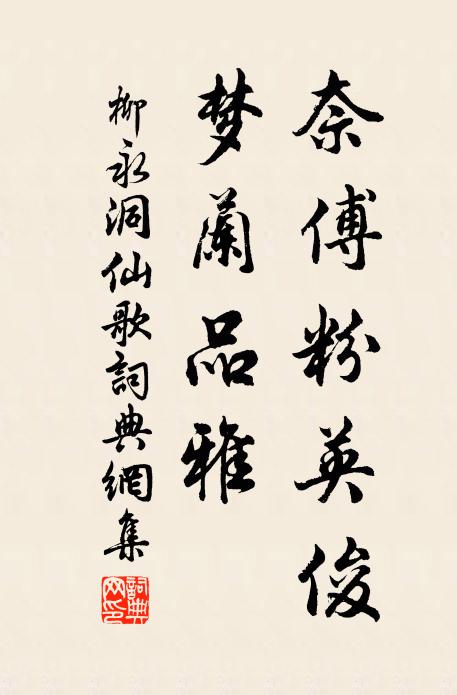 奈傅粉英俊
梦蘭品雅
柳永洞仙歌詞典網集
詞典网印